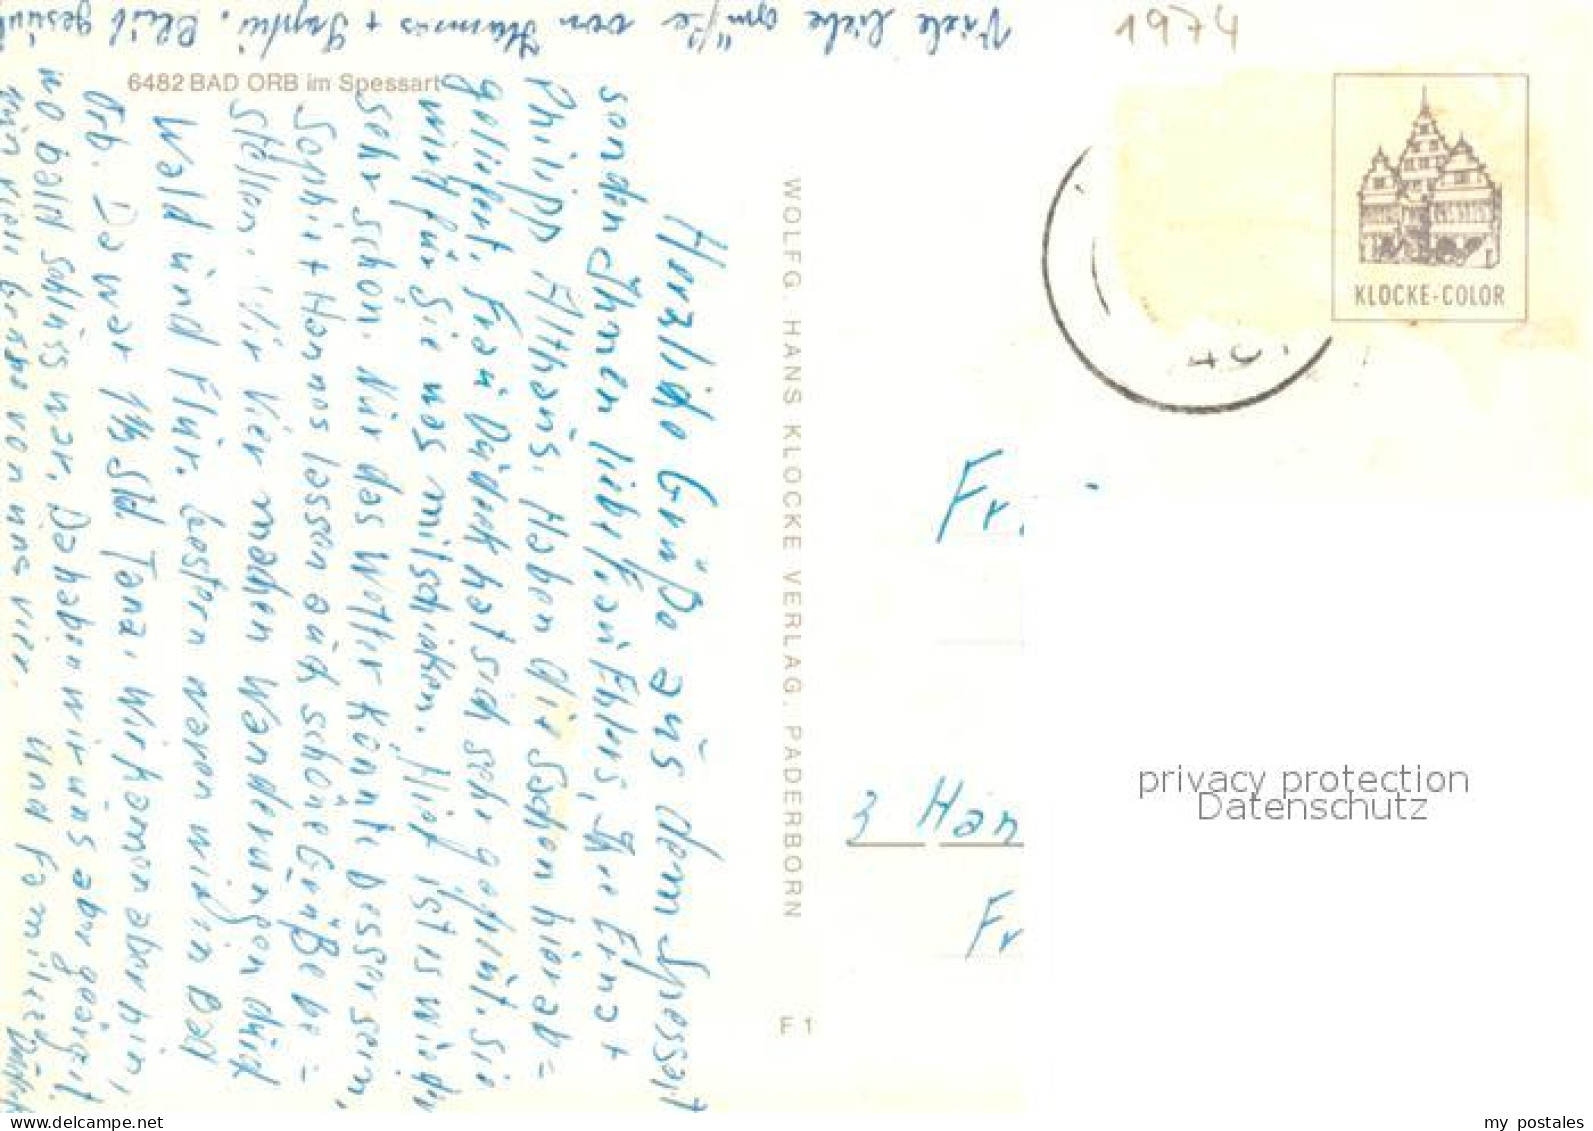 1974
6482 BAD ORB im Spessart
KLOCKE-COLOR
WOLFG. HANS KLOCKE VERLAG, PADERBORN
F 1
Herzliche Grüße aus dem Spessart
senden Ihnen liebe Frau Ehlers, Ihre Erna +
Philipp Althaus. Haben die Sachen hier ab=
geliefert. Frau Dudeck hat sich sehr gefreut. Sie
wird für Sie was mitschicken. Hier ist es wieder
sehr schön. Nur das Wetter könnte besser sein.
Sophie + Hannes lassen auch schöne Grüße be=
stellen. Wir Vier machen Wanderungen durch
Wald und Flur. Gestern waren wir in Bad
Orb. Da war 1½ Std Tanz. Wir kamen aber hin,
wo bald Schluss war. Da haben wir uns aber geärgert.
Nun viele Grüße von uns vier. Und Familie
Viele liebe Grüße von Hannes + Sophie. Bleib gesund
Fr.
3 Han
Fr
privacy protection
Datenschutz
my postales
www.delcampe.net